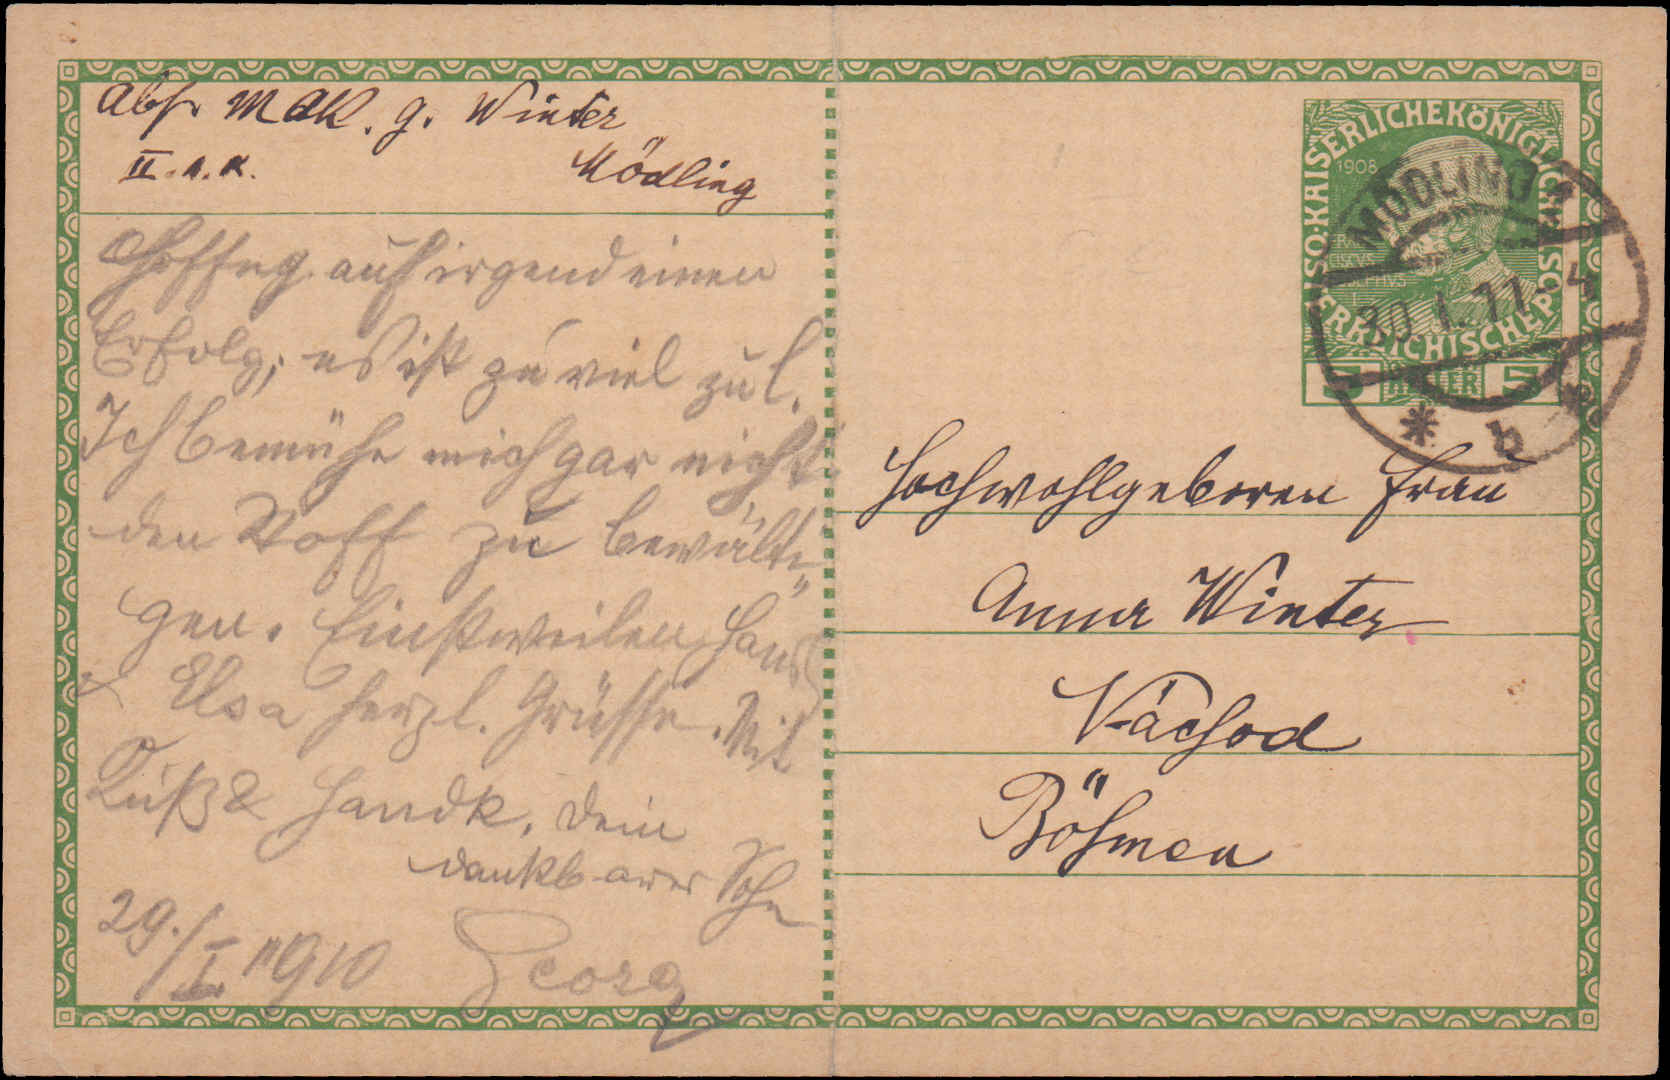 Abs. MAK. G. Winter
II. A. K. Mödling
Hoffng. auf irgend einen
Erfolg; es ist zu viel zu l.
Ich bemühe mich gar nicht
den Stoff zu bewälti-
gen. Einstweilen Hans
x Elsa herzl. Grüsse. Mit
Kuß & Handk. Dein
dankbarer Sohn
Georg
29./I. 1910
K.K. ÖSTERREICHISCHE POST
KAISERLICHE KÖNIGLICHE
1908
5 HELLER 5
MÖDLING 1
30 I. 11-4
* b *
Hochwohlgeboren Frau
Anna Winter
Náchod
Böhmen